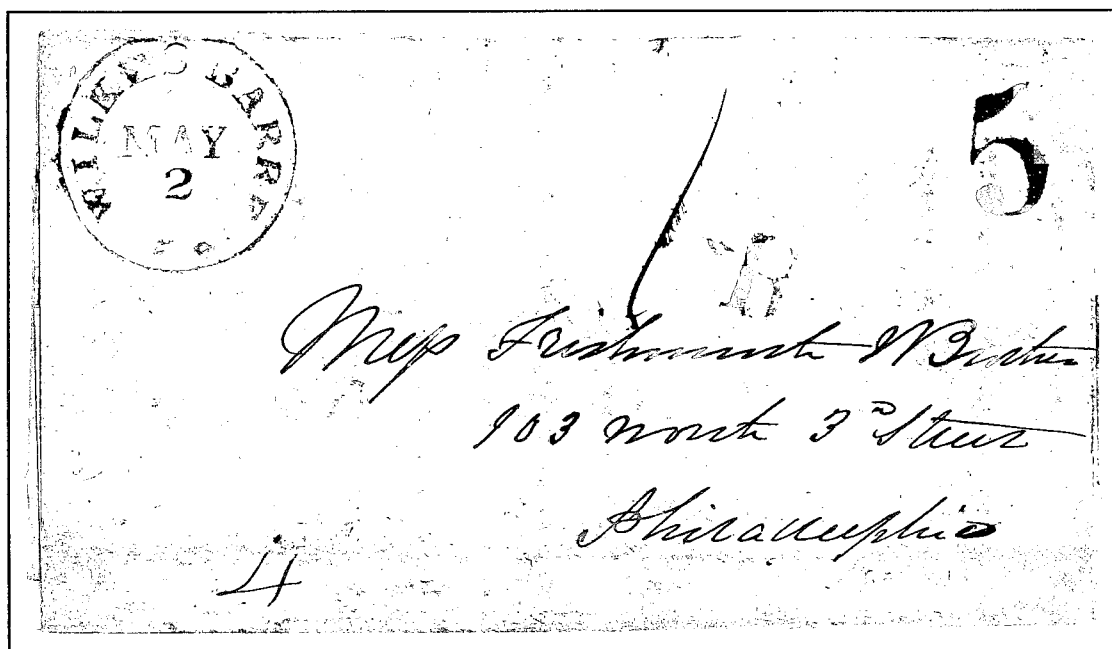 WILKES BARRE
MAY
2
5
Mess Frishmuth & Brother
103 North 3d Street
Philadelphia
4